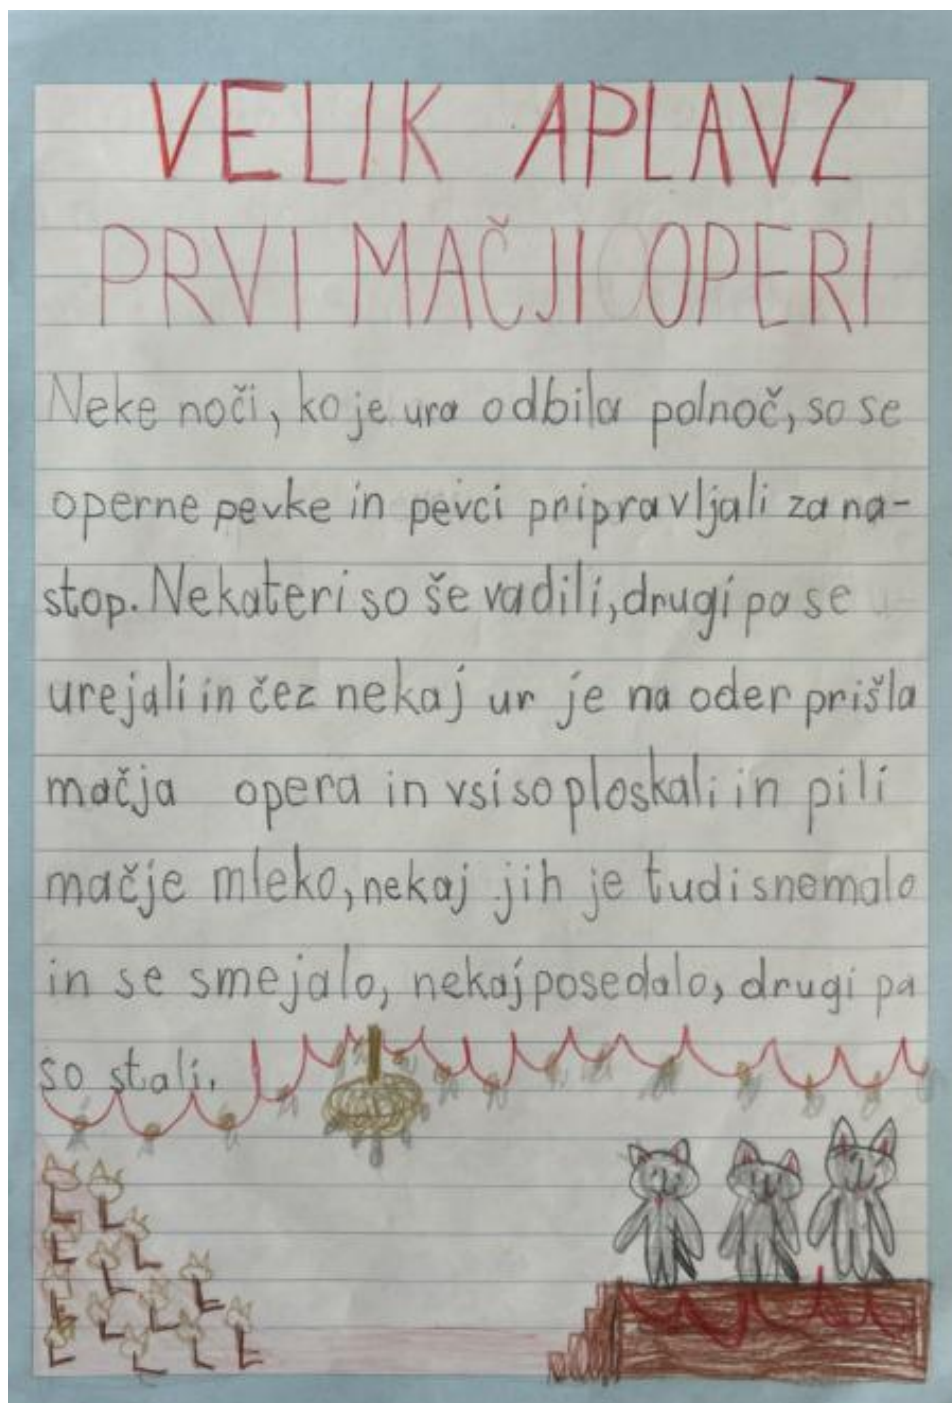 VELIK APLAVZ
PRVI MAČJI OPERI
Neke noči, ko je ura odbila polnoč, so se
operne pevke in pevci pripravljali za na-
stop. Nekateri so še vadili, drugi pa se
urejali in čez nekaj ur je na oder prišla
mačja opera in vsi so ploskali in pili
mačje mleko, nekaj jih je tudi snemalo
in se smejalo, nekaj posedalo, drugi pa
so stali.